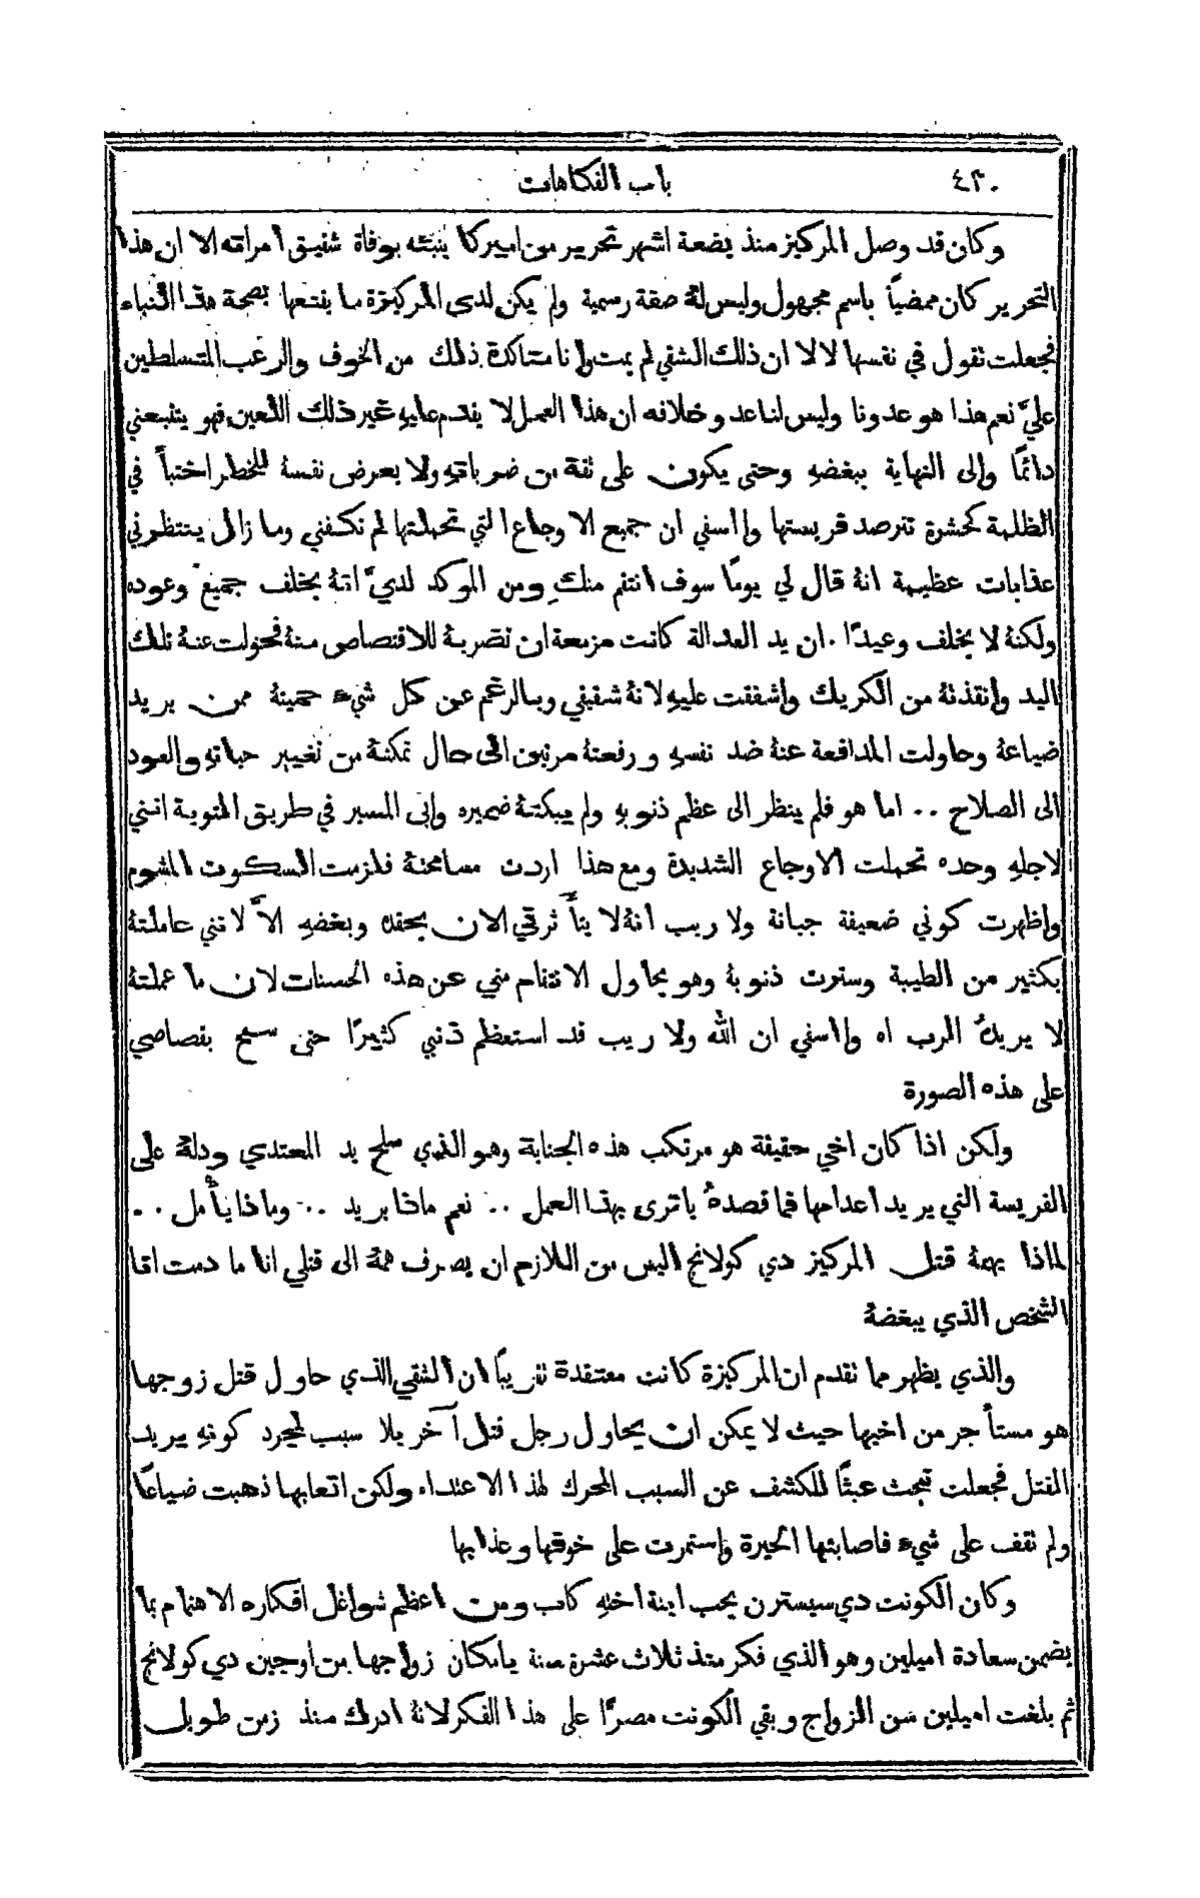 ٤٣٠
باب الفكاهات
وكان قد وصل المركيز منذ بضعة اشهر تحرير من اميركا ينبئه بوفاة شقيق امراته الا ان هذا
التحرير كان ممضياً باسم مجهول وليس لهُ صفة رسمية ولم يكن لدى المركيزة ما يقنعها بصحة هذا النباء
فجعلت نقول في نفسها لا لا ان ذلك الشقي لم يمت وانا متاكدة ذلك من الخوف والرعب المتسلطين
عليَّ نعم هذا هو عدونا وليس لنا عدو خلافه ان هذا العمل لا يقدم عليهِ غير ذلك اللعين فهو يتبعني
دائمًا والى النهاية ببغضهِ وحتى يكون على ثقة من ضرباتهِ ولا يعرض نفسهُ للخطر اختبأ في
الظلمة كحشرة تترصد فريستها وااسفي ان جميع الاوجاع التي تحملتها لم تكفني وما زال ينتظرني
عذابات عظيمة انهُ قال لي يومًا سوف انتقم منكِ ومن الموكد لديَّ انهُ يخلف جميع وعوده
ولكنهُ لا يخلف وعيدًا . ان يد العدالة كانت مزمعة ان تضربهُ للاقتصاص منهُ فحولت عنهُ تلك
اليد وانقذتهُ من الكريك واشفقت عليهِ لانهُ شقيقي وبالرغم عن كل شيء حميتهُ ممن يريد
ضياعهُ وحاولت المدافعة عنهُ ضد نفسهِ ورفعتهُ مرتين الى حال تمكنهُ من تغيير حياتهِ والعود
الى الصلاح .. اما هو فلم ينظر الى عظم ذنوبهِ ولم يبكتهُ ضميره وابى المسير في طريق التوبة انني
لاجلهِ وحده تحملت الاوجاع الشديدة ومع هذا اردت مسامحتهُ فلزمت السكوت المشوم
واظهرت كوني ضعيفة جبانة ولا ريب انهُ لا يتأثر في الان بحقده وبغضهِ الاَّ لانني عاملتهُ
بكثير من الطيبة وسترت ذنوبهُ وهو يحاول الانتقام مني عن هذه الحسنات لان ما عملتهُ
لا يريدهُ الرب اه وااسفي ان الله ولا ريب قد استعظم ذنبي كثيرًا حتى سمح بقصاصي
على هذه الصورة
ولكن اذا كان اخي حقيقة هو مرتكب هذه الجناية وهو الذي سلح يد المعتدي ودلهُ على
الفريسة التي يريد اعدامها فما قصدهُ ياترى بهذا العمل .. نعم ماذا يريد .. وماذا يأمل ..
لماذا يهمهُ قتل المركيز دي كولانج اليس من اللازم ان يصرف همهُ الى قتلي انا ما دمت انا
الشخص الذي يبغضهُ
والذي يظهر مما نقدم ان المركيزة كانت معتقدة نقريبًا ان الشقي الذي حاول قتل زوجها
هو مستأجر من اخيها حيث لا يمكن ان يحاول رجل قتل آخر بلا سبب لمجرد كونهِ يريد
القتل فجعلت تبحث عبثًا للكشف عن السبب المحرك لهذا الاعتداء ولكن اتعابها ذهبت ضياعًا
ولم نقف على شيء فاصابتها الحيرة واستمرت على خوفها وعذابها
وكان الكونت دي سيسترن يحب ابنة اخيهِ كاب ومن اعظم شواغل افكاره الاهتمام بما
يضمن سعادة اميلين وهو الذي فكر منذ ثلاث عشرة سنة بامكان زواجها من اوجين دي كولانج
ثم بلغت اميلين سن الزواج وبقي الكونت مصرًّا على هذا الفكر لانهُ ادرك منذ زمن طويل